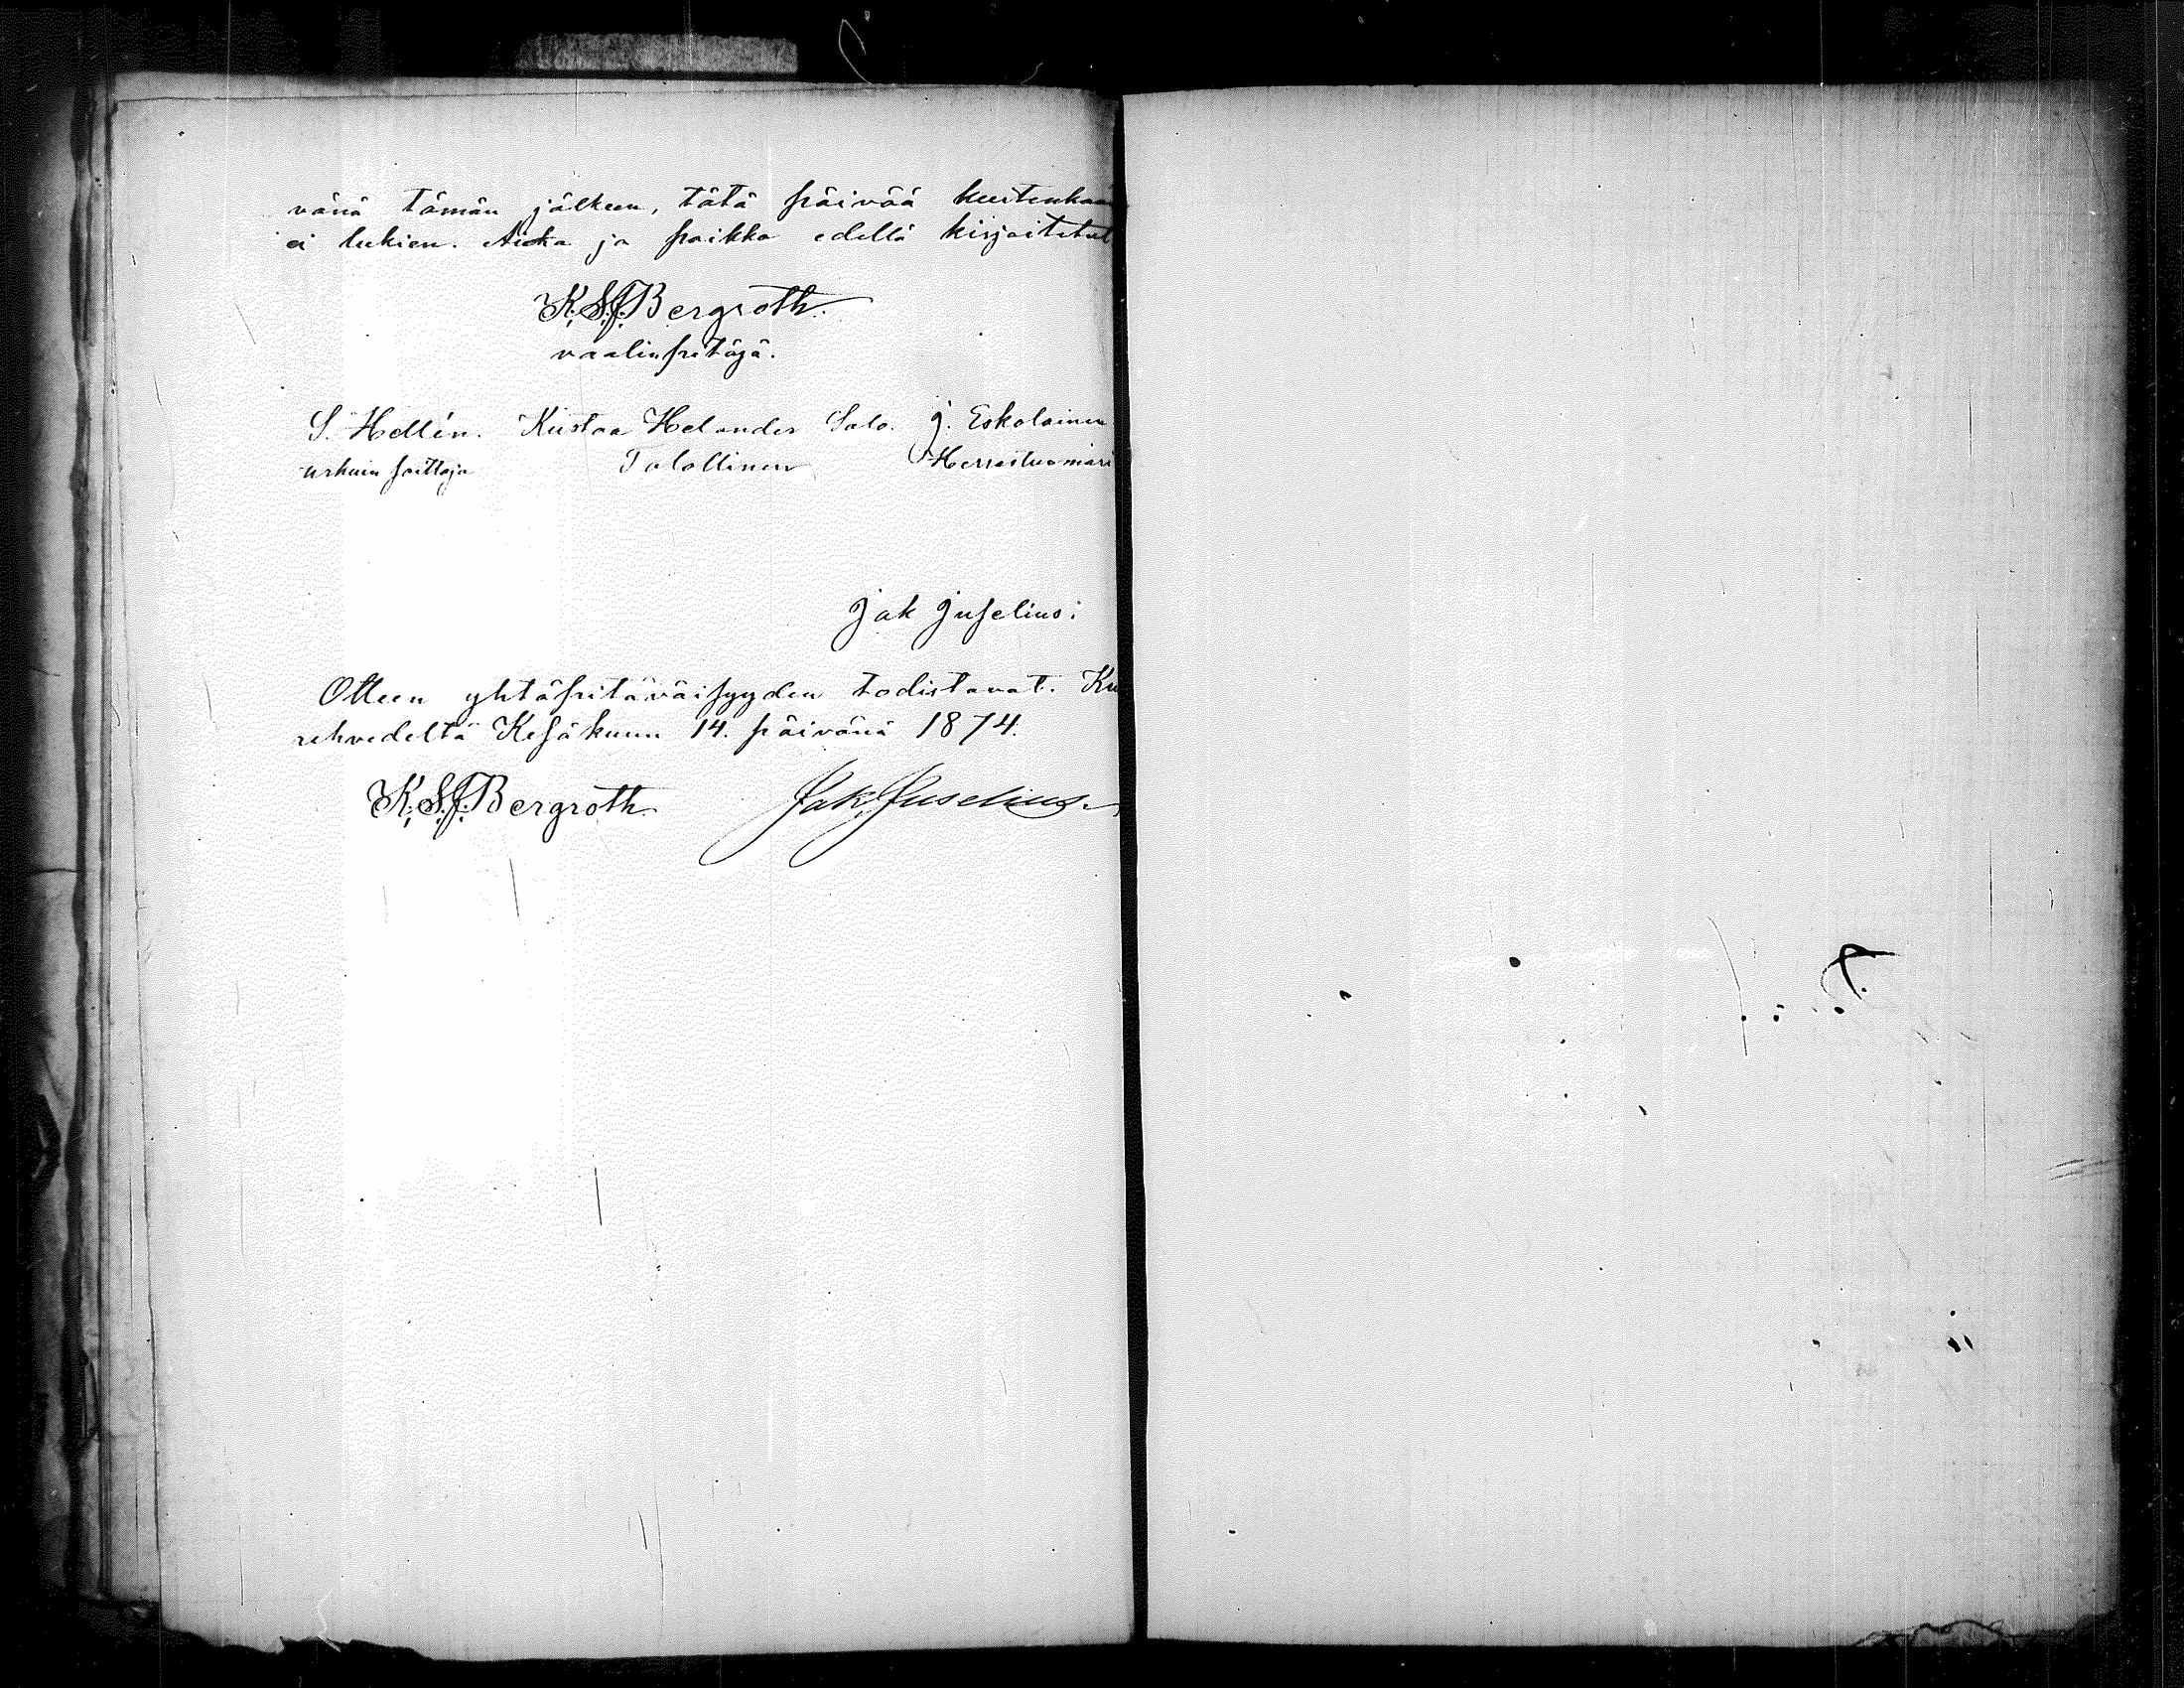 vänä tämän jälkeen, tätä päivää kuitenkaan
ei lukien. Aika ja paikka edellä kirjoitetut
K. S. J. Bergroth.
vaalinpitäjä.
S. Hellén. Kustaa Helander Salo. J. Eskolainen
urkuin soittaja Talollinen Herrastuomari
Jak Juselius:
Otteen yhtäpitäväisyyden todistavat. Ku
rehvedeltä Kesäkuun 14. päivänä 1874.
K. S. J. Bergroth. Jak. Juselius.